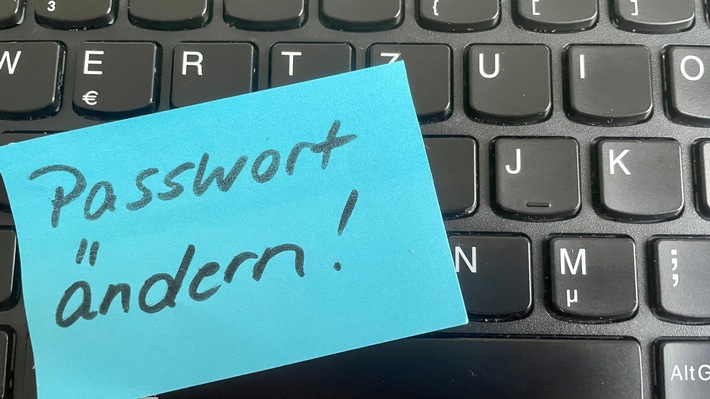 3 { [ ]
W E R T Z U I O
€
Passwort
ändern!
J K
N M ;
µ ,
AltG